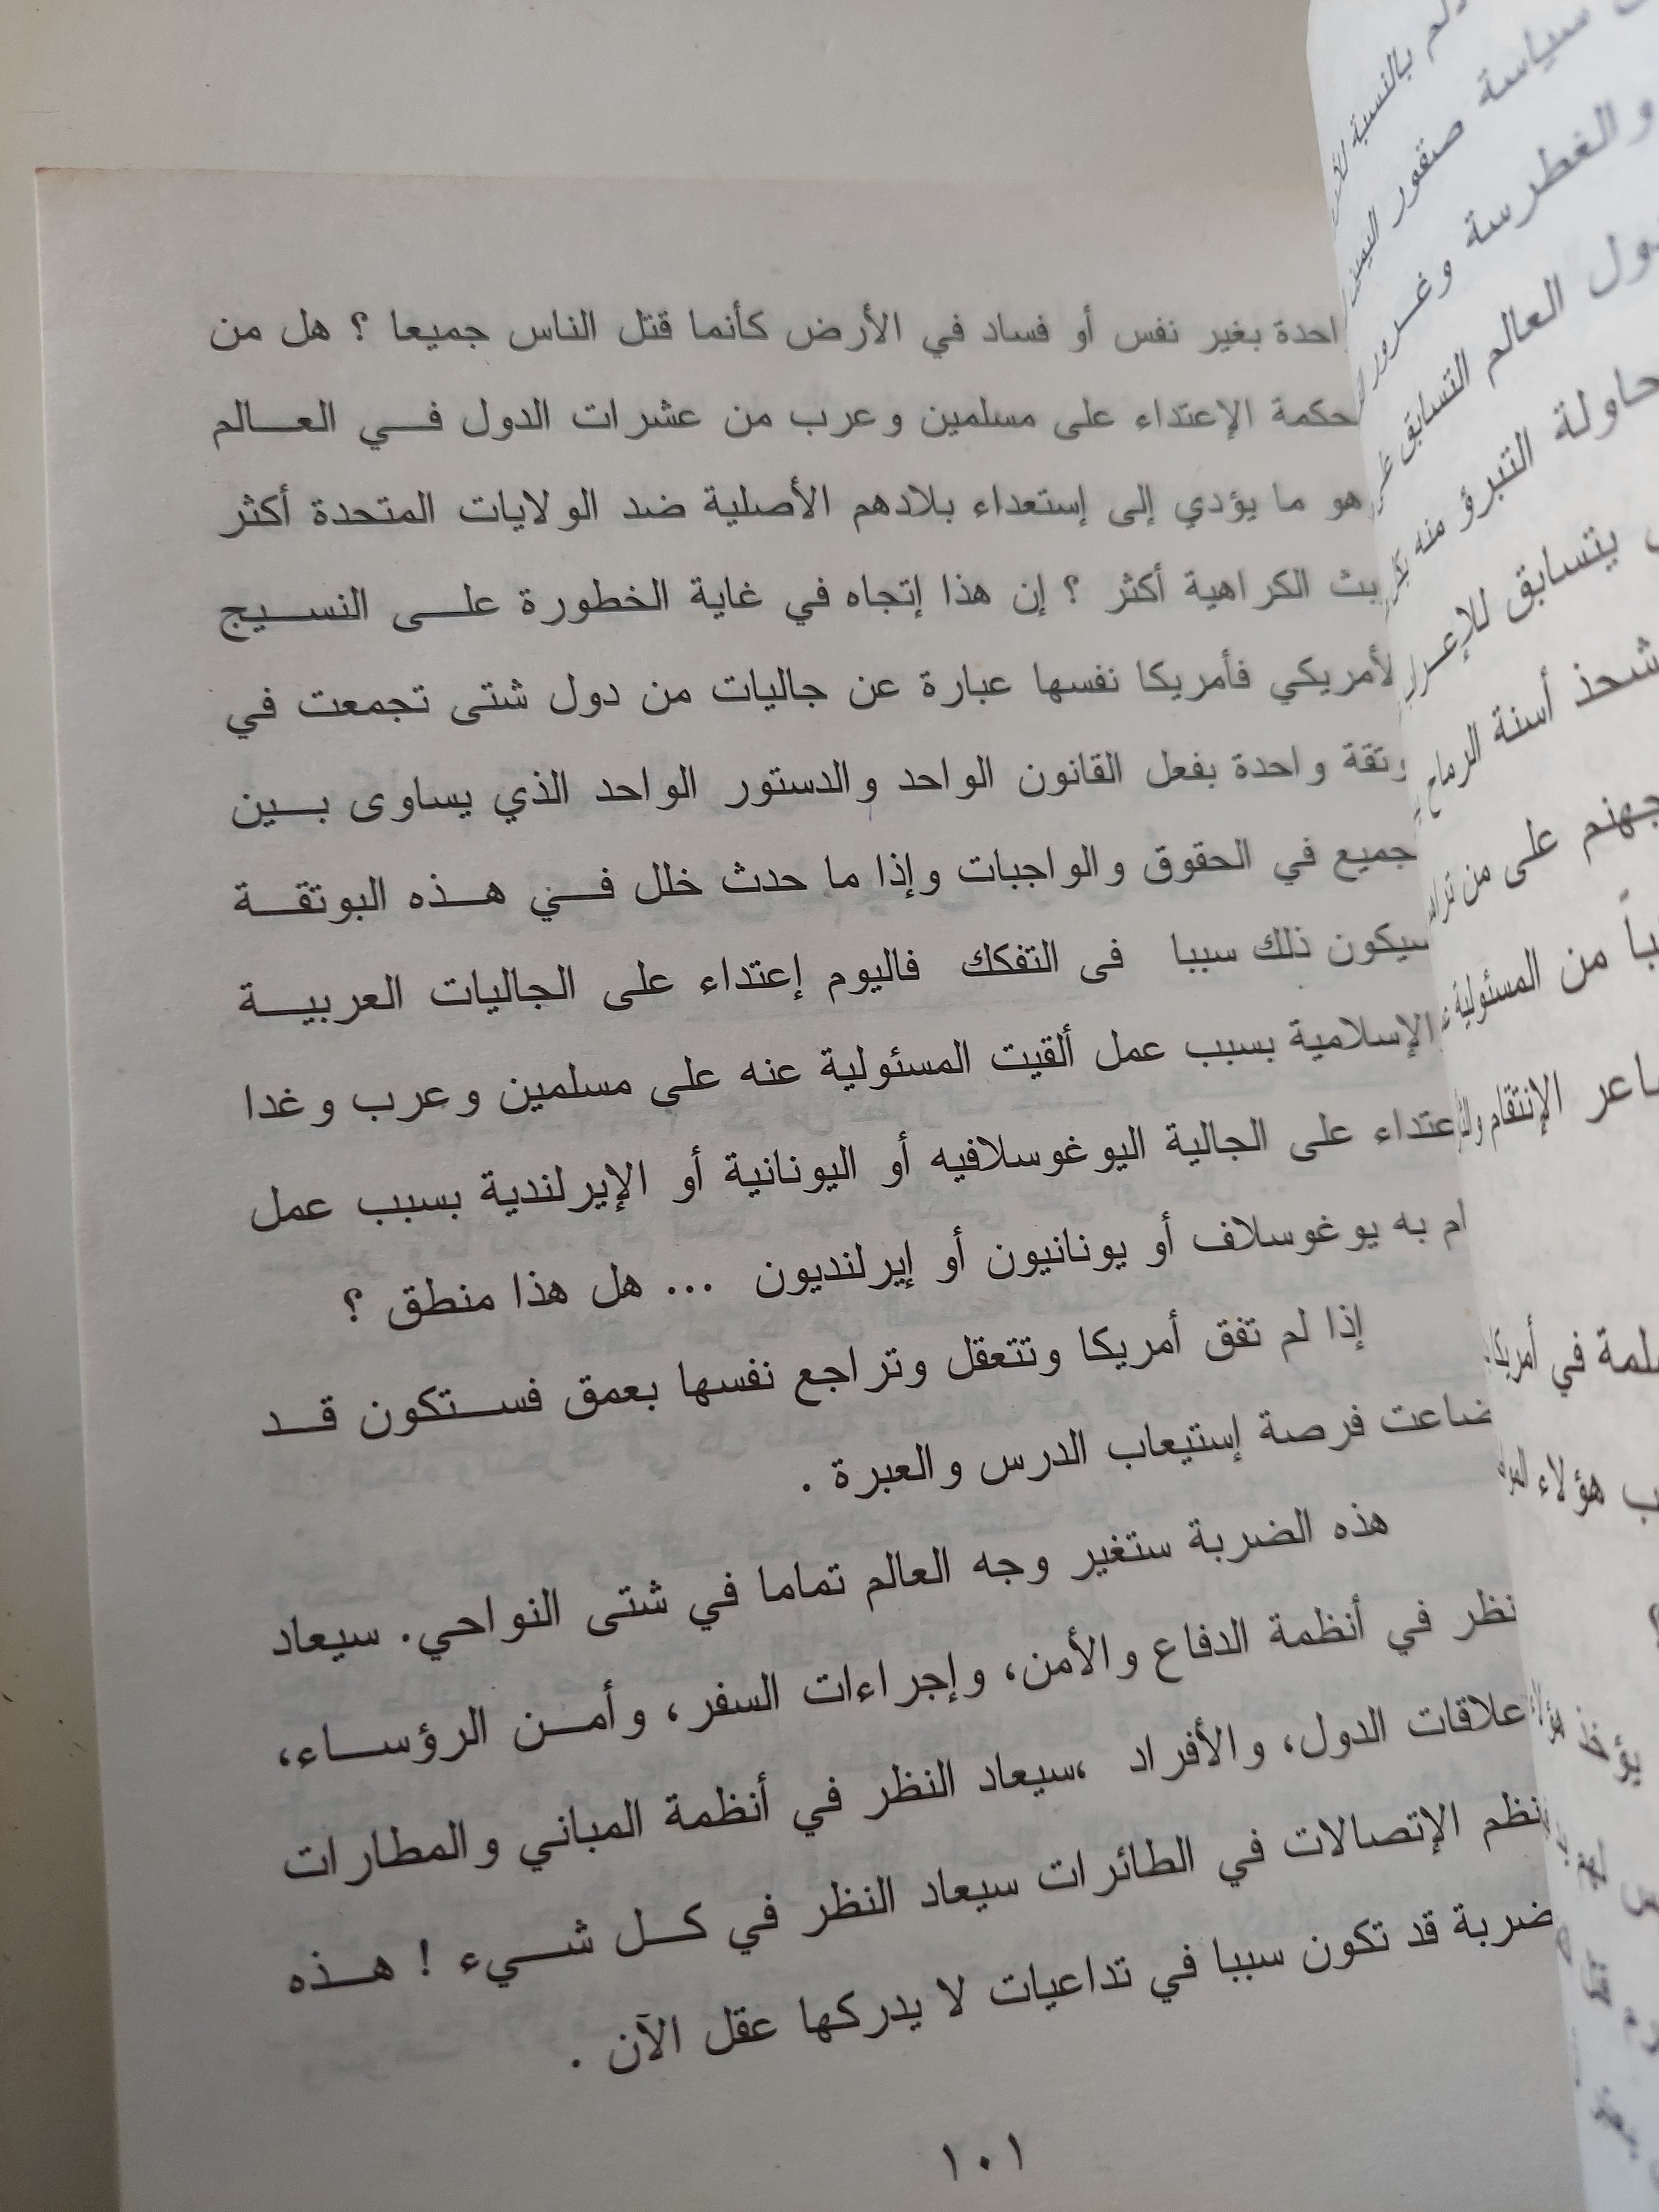 احدة بغير نفس أو فساد في الأرض كأنما قتل الناس جميعا ؟ هل من
حكمة الإعتداء على مسلمين وعرب من عشرات الدول في العالم
هو ما يؤدي إلى إستعداء بلادهم الأصلية ضد الولايات المتحدة أكثر
بث الكراهية أكثر ؟ إن هذا إتجاه في غاية الخطورة على النسيج
لأمريكي فأمريكا نفسها عبارة عن جاليات من دول شتى تجمعت في
وتقة واحدة بفعل القانون الواحد والدستور الواحد الذي يساوى بين
جميع في الحقوق والواجبات وإذا ما حدث خلل في هذه البوتقة
سيكون ذلك سببا فى التفكك فاليوم إعتداء على الجاليات العربية
الإسلامية بسبب عمل ألقيت المسئولية عنه على مسلمين وعرب وغدا
عتداء على الجالية اليوغوسلافيه أو اليونانية أو الإيرلندية بسبب عمل
ام به يوغوسلاف أو يونانيون أو إيرلنديون ... هل هذا منطق ؟
إذا لم تفق أمريكا وتتعقل وتراجع نفسها بعمق فستكون قد
ضاعت فرصة إستيعاب الدرس والعبرة .
هذه الضربة ستغير وجه العالم تماما في شتى النواحي. سيعاد
نظر في أنظمة الدفاع والأمن، وإجراءات السفر، وأمن الرؤساء،
علاقات الدول، والأفراد ،سيعاد النظر في أنظمة المباني والمطارات
نظم الإتصالات في الطائرات سيعاد النظر في كل شيء ! هذه
ضربة قد تكون سببا في تداعيات لا يدركها عقل الآن .
١٠١
بالنسبة
سياسة صقور
والغطرسة وغرور
ول العالم التسابق
حاولة التبرؤ منه
يتسابق
شحذ أسنة الرماح
جهنم على من
باً من المسئولية
اعر الإنتقام
لمة في أمريكا
ب هؤلاء
يؤخذ